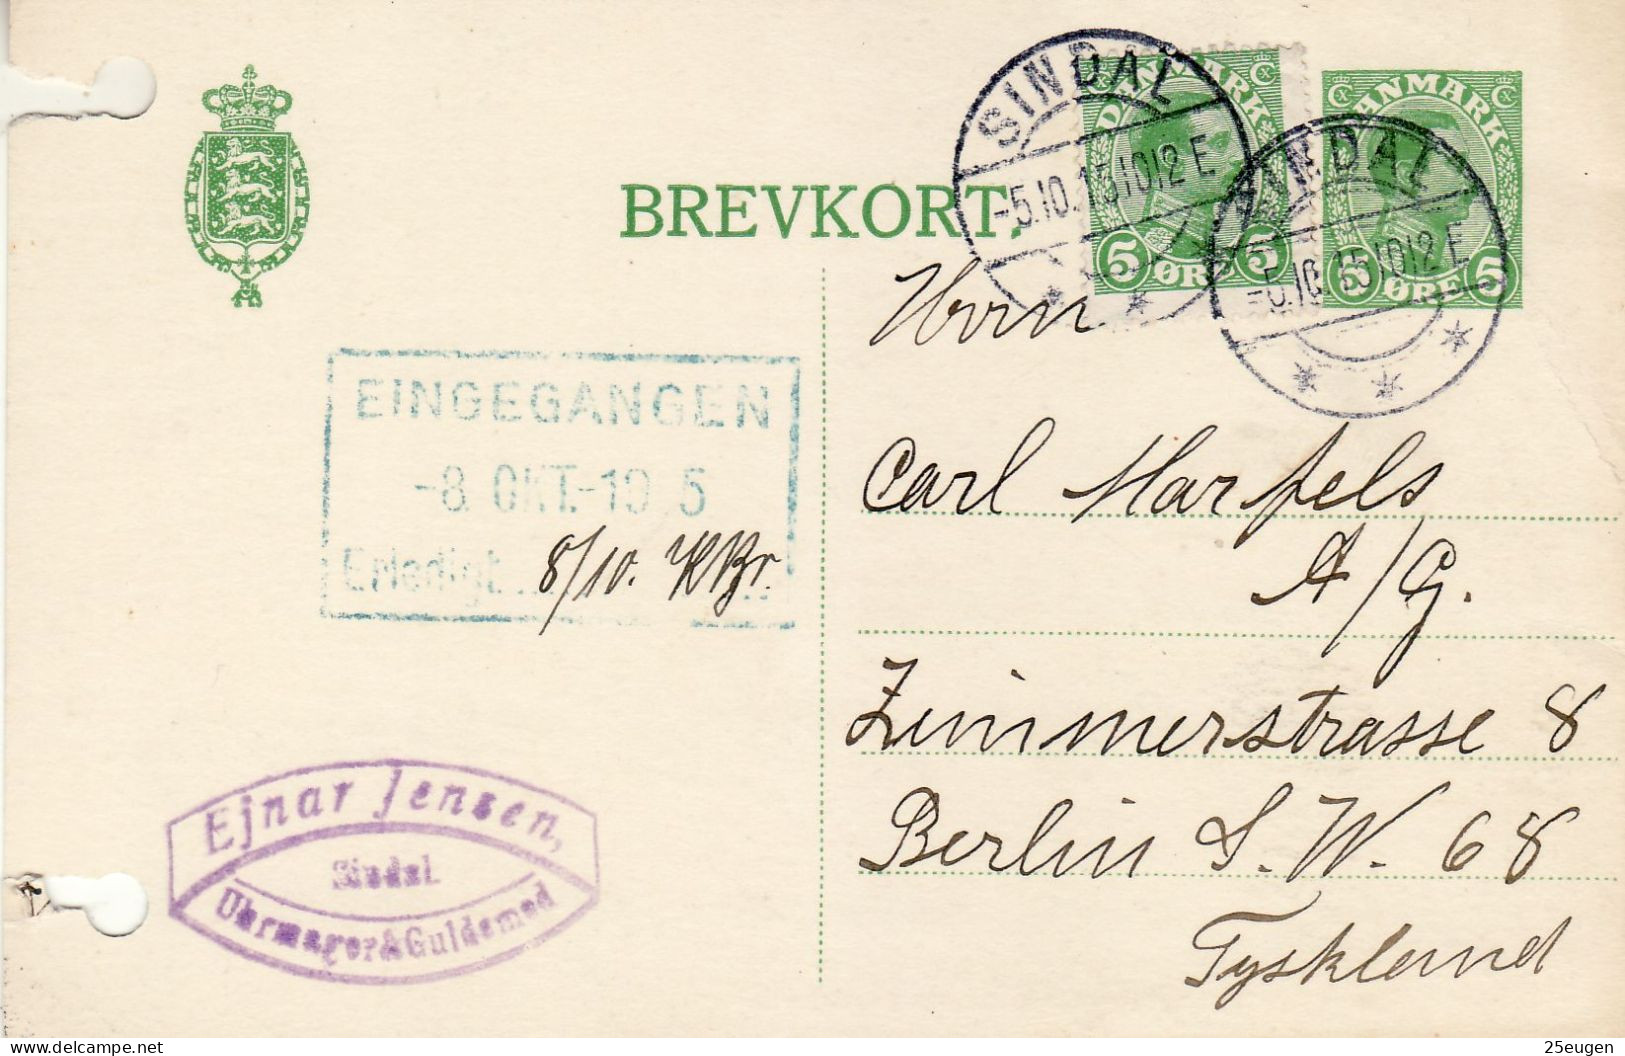 BREVKORT.
SINDAL
-5.10.15 10 12 E
DANMARK
5 ØRE 5
DANMARK
5 ØRE 5
SINDAL
-5.10.15 10 12 E
Herrn
Carl Marfels
A/G.
Zimmerstrasse 8
Berlin S.W. 68
Tyskland
EINGEGANGEN
-8. OKT.-19 5
Erledigt 8/10.
Ejnar Jensen,
Sindal.
Uhrmager & Guldsmed
25eugen